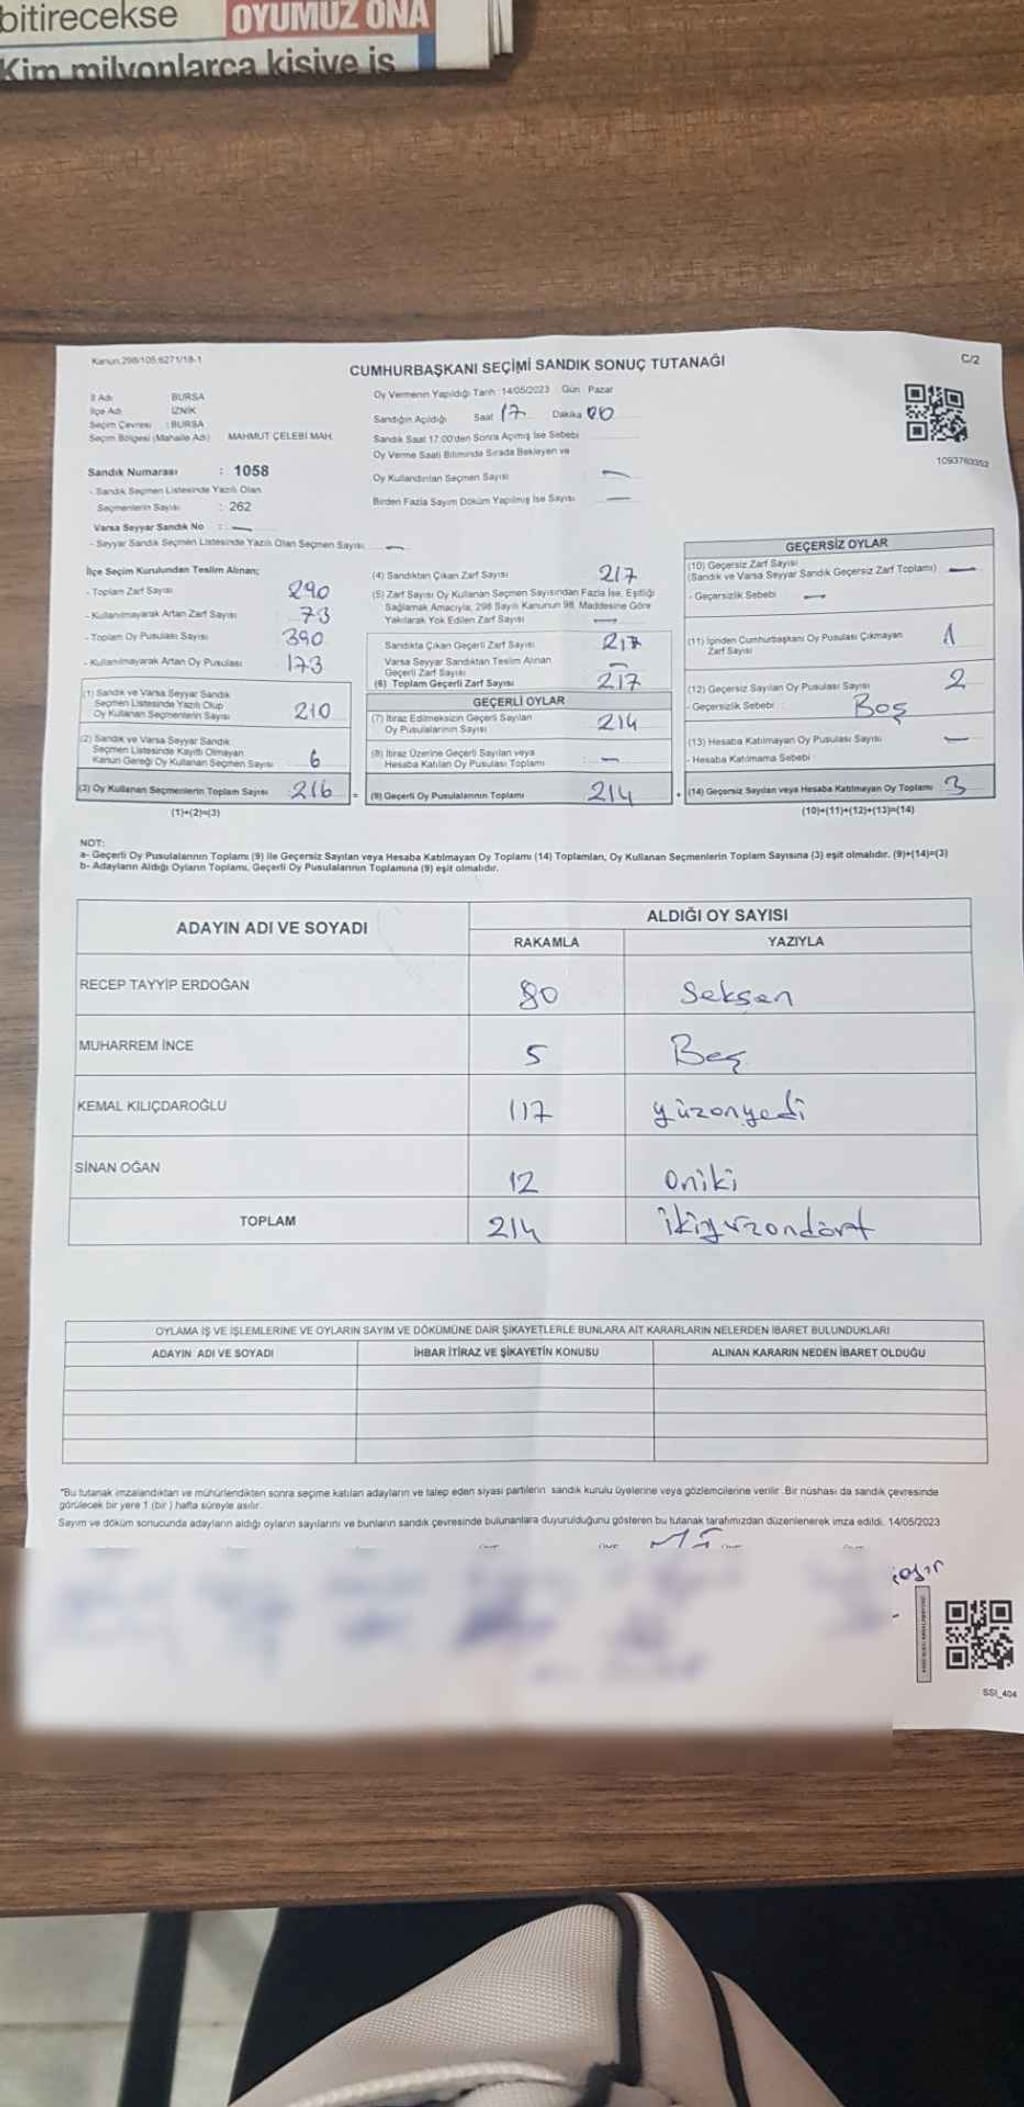 bitirecekse OYUMUZ ONA
Kim milyonlarca kişiye iş
Kanun 298/105 6271/18-1
CUMHURBAŞKANI SEÇİMİ SANDIK SONUÇ TUTANAĞI
C/2
İl Adı BURSA
İlçe Adı İZNİK
Seçim Çevresi : BURSA
Seçim Bölgesi (Mahalle Adı) MAHMUT ÇELEBİ MAH.
Sandık Numarası : 1058
- Sandık Seçmen Listesinde Yazılı Olan
Seçmenlerin Sayısı : 262
Varsa Seyyar Sandık No : —
- Seyyar Sandık Seçmen Listesinde Yazılı Olan Seçmen Sayısı —
Oy Vermenin Yapıldığı Tarih : 14/05/2023 Gün : Pazar
Sandığın Açıldığı Saat 17 Dakika 00
Sandık Saat 17:00'den Sonra Açılmış İse Sebebi
Oy Verme Saati Bitiminde Sırada Bekleyen ve
Oy Kullandırılan Seçmen Sayısı —
Birden Fazla Sayım Döküm Yapılmış İse Sayısı —
1093763352
İlçe Seçim Kurulundan Teslim Alınan;
- Toplam Zarf Sayısı 290
- Kullanılmayarak Artan Zarf Sayısı 73
- Toplam Oy Pusulası Sayısı 390
- Kullanılmayarak Artan Oy Pusulası 173
(1) Sandık ve Varsa Seyyar Sandık
Seçmen Listesinde Yazılı Olup
Oy Kullanan Seçmenlerin Sayısı 210
(2) Sandık ve Varsa Seyyar Sandık
Seçmen Listesinde Kayıtlı Olmayan
Kanun Gereği Oy Kullanan Seçmen Sayısı 6
(3) Oy Kullanan Seçmenlerin Toplam Sayısı 216 =
(1)+(2)=(3)
(4) Sandıktan Çıkan Zarf Sayısı 217
(5) Zarf Sayısı Oy Kullanan Seçmen Sayısından Fazla İse, Eşitliği
Sağlamak Amacıyla, 298 Sayılı Kanunun 98. Maddesine Göre
Yakılarak Yok Edilen Zarf Sayısı —
Sandıkta Çıkan Geçerli Zarf Sayısı 217
Varsa Seyyar Sandıktan Teslim Alınan
Geçerli Zarf Sayısı —
(6) Toplam Geçerli Zarf Sayısı 217
GEÇERLİ OYLAR
(7) İtiraz Edilmeksizin Geçerli Sayılan
Oy Pusulalarının Sayısı 214
(8) İtiraz Üzerine Geçerli Sayılan veya
Hesaba Katılan Oy Pusulası Toplamı : —
(9) Geçerli Oy Pusulalarının Toplamı 214 +
GEÇERSİZ OYLAR
(10) Geçersiz Zarf Sayısı
(Sandık ve Varsa Seyyar Sandık Geçersiz Zarf Toplamı) —
- Geçersizlik Sebebi : —
(11) İçinden Cumhurbaşkanı Oy Pusulası Çıkmayan
Zarf Sayısı 1
(12) Geçersiz Sayılan Oy Pusulası Sayısı 2
- Geçersizlik Sebebi : Boş
(13) Hesaba Katılmayan Oy Pusulası Sayısı —
- Hesaba Katılmama Sebebi
(14) Geçersiz Sayılan veya Hesaba Katılmayan Oy Toplamı 3
(10)+(11)+(12)+(13)=(14)
NOT:
a- Geçerli Oy Pusulalarının Toplamı (9) ile Geçersiz Sayılan veya Hesaba Katılmayan Oy Toplamı (14) Toplamları, Oy Kullanan Seçmenlerin Toplam Sayısına (3) eşit olmalıdır. (9)+(14)=(3)
b- Adayların Aldığı Oyların Toplamı, Geçerli Oy Pusulalarının Toplamına (9) eşit olmalıdır.
ADAYIN ADI VE SOYADI ALDIĞI OY SAYISI
RAKAMLA YAZIYLA
RECEP TAYYİP ERDOĞAN 80 Seksen
MUHARREM İNCE 5 Beş
KEMAL KILIÇDAROĞLU 117 yüzonyedi
SİNAN OĞAN 12 oniki
TOPLAM 214 ikiyüzondört
OYLAMA İŞ VE İŞLEMLERİNE VE OYLARIN SAYIM VE DÖKÜMÜNE DAİR ŞİKAYETLERLE BUNLARA AİT KARARLARIN NELERDEN İBARET BULUNDUKLARI
ADAYIN ADI VE SOYADI İHBAR İTİRAZ VE ŞİKAYETİN KONUSU ALINAN KARARIN NEDEN İBARET OLDUĞU
*Bu tutanak imzalandıktan ve mühürlendikten sonra seçime katılan adayların ve talep eden siyasi partilerin sandık kurulu üyelerine veya gözlemcilerine verilir. Bir nüshası da sandık çevresinde
görülecek bir yere 1 (bir ) hafta süreyle asılır.
Sayım ve döküm sonucunda adayların aldığı oyların sayılarını ve bunların sandık çevresinde bulunanlara duyurulduğunu gösteren bu tutanak tarafımızdan düzenlenerek imza edildi. 14/05/2023
SSI_404